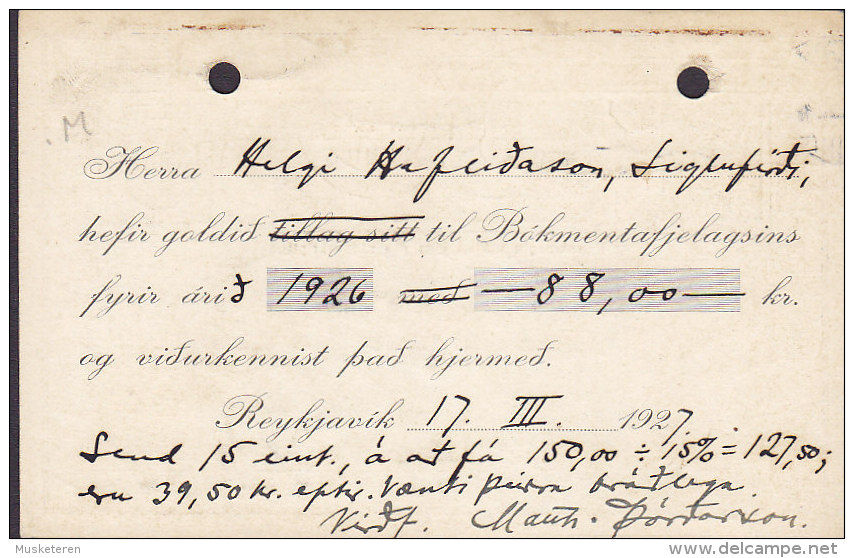 .M
Herra Helgi Hafliðason, Siglufirði,
hefir goldið tillag sitt til Bókmentafjelagsins
fyrir árið 1926 með —88,00— kr.
og viðurkennist það hjermeð.
Reykjavík 17. III. 1927.
Send 15 eint., á að fá 150,00 ÷ 15% = 127,50;
eru 39,50 kr. eptir. Vænti þeirra bráðlega.
Virðf. Matth. Þórðarson.
Musketeren
delcampe.net